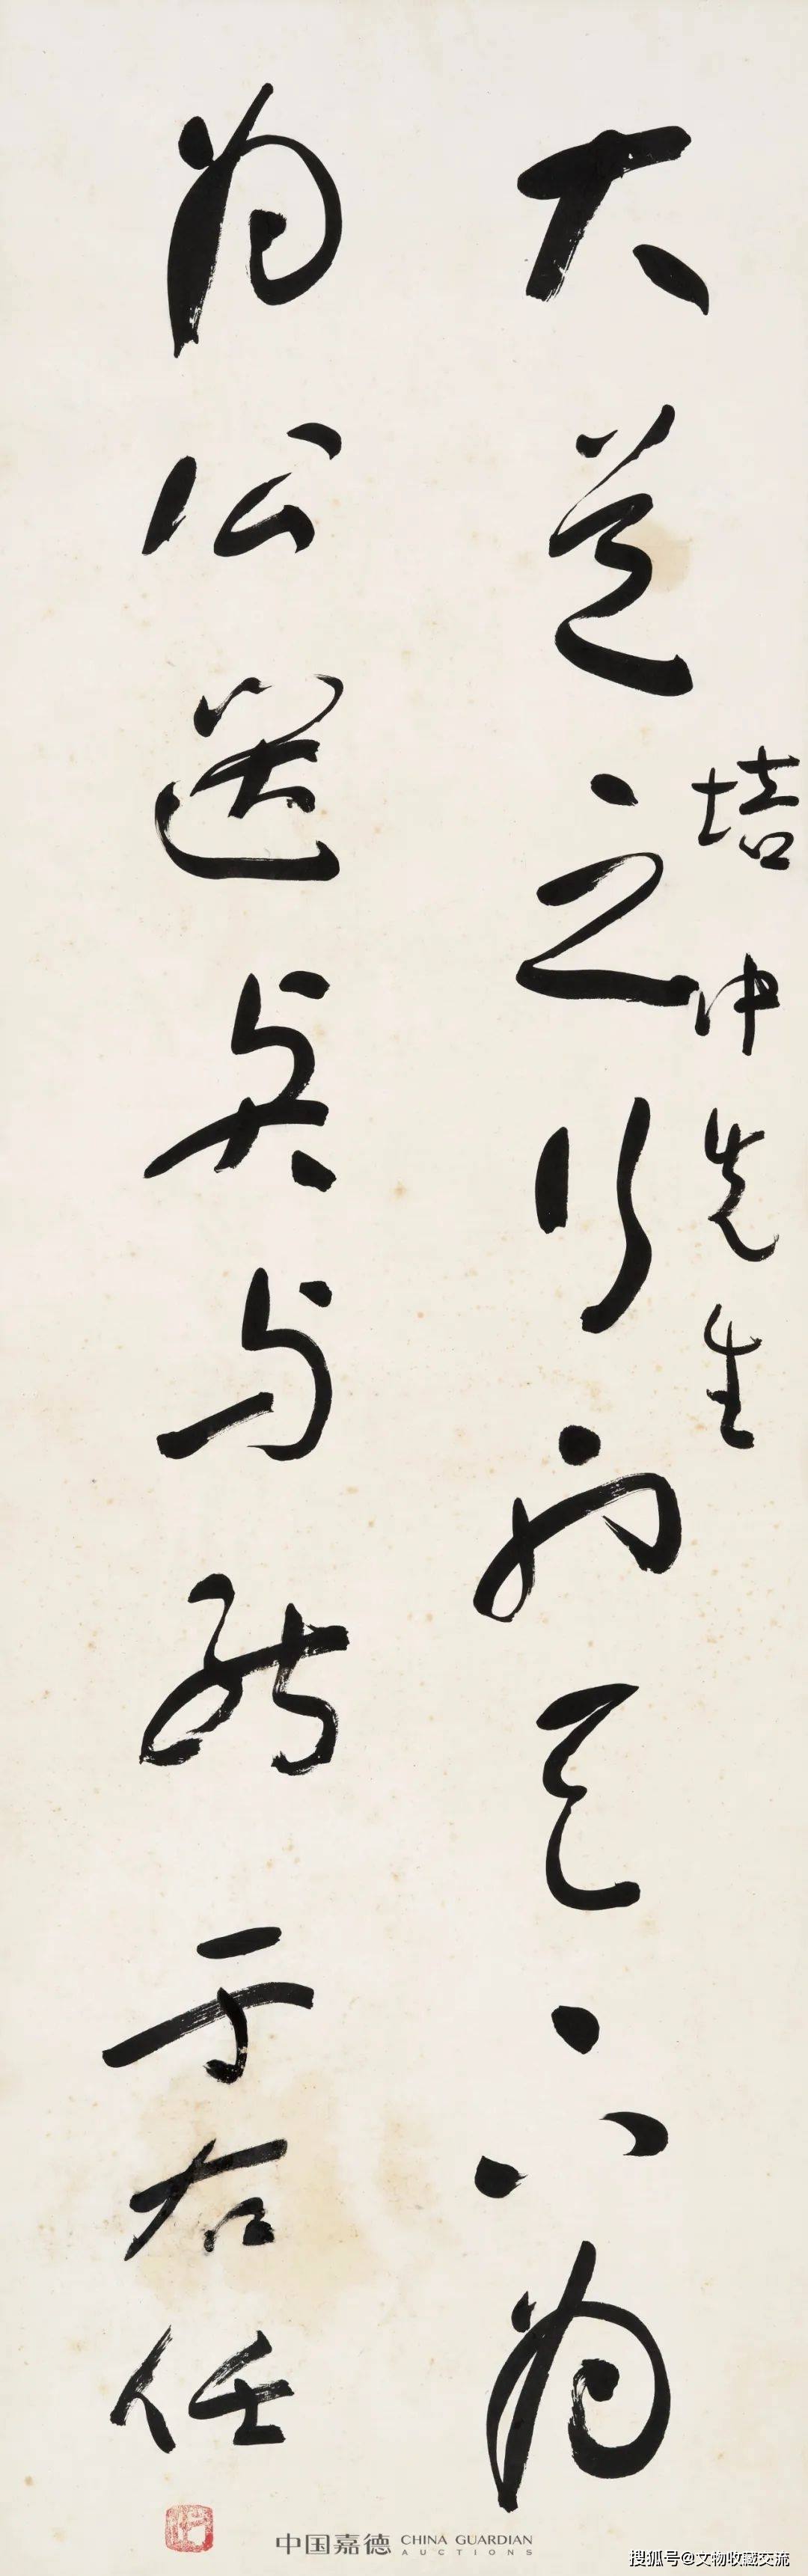 培仲先生
大道之行也天下為
為公選賢與能
于右任
中国嘉德 CHINA GUARDIAN
AUCTIONS
搜狐号@文物收藏交流